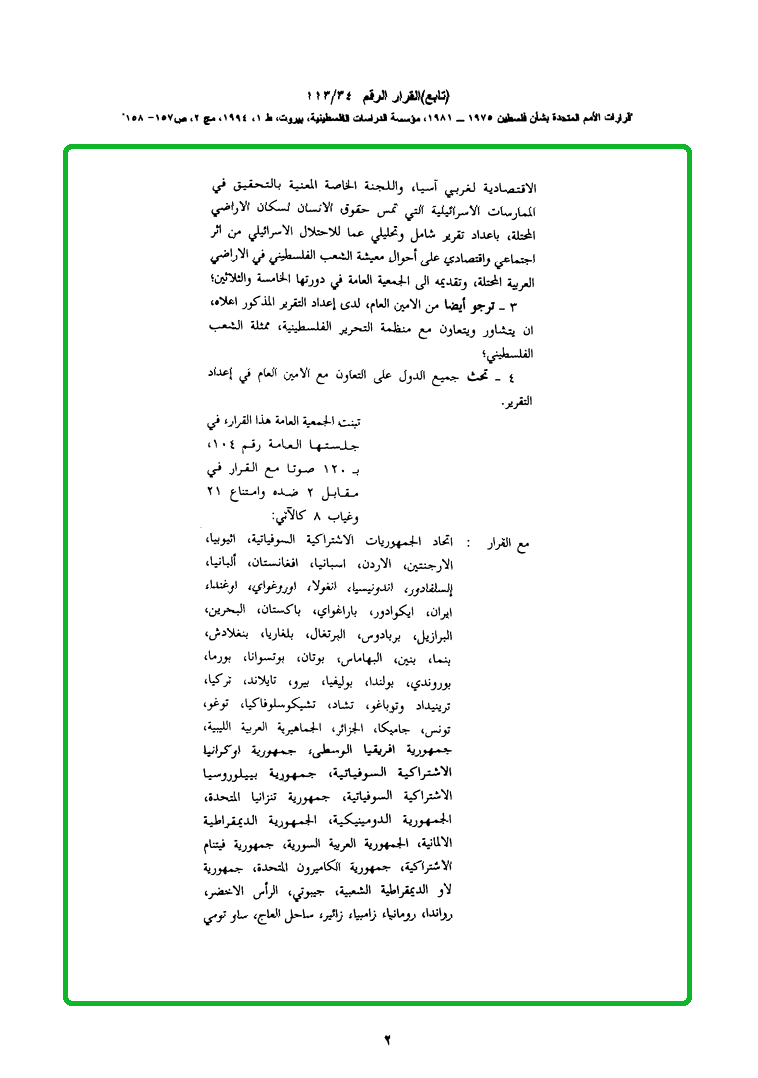 (تابع)القرار الرقم ١١٣/٣٤
"قرارات الأمم المتحدة بشأن فلسطين ١٩٧٥ – ١٩٨١، مؤسسة الدراسات الفلسطينية، بيروت، ط ١، ١٩٩٤، مج ٢، ص١٥٧- ١٥٨"
الاقتصادية لغربي آسيا، واللجنة الخاصة المعنية بالتحقيق في
الممارسات الاسرائيلية التي تمس حقوق الانسان لسكان الاراضي
المحتلة، باعداد تقرير شامل وتحليلي عما للاحتلال الاسرائيلي من اثر
اجتماعي واقتصادي على أحوال معيشة الشعب الفلسطيني في الاراضي
العربية المحتلة، وتقديمه الى الجمعية العامة في دورتها الخامسة والثلاثين؛
٣ – ترجو أيضا من الامين العام، لدى إعداد التقرير المذكور اعلاه،
ان يتشاور ويتعاون مع منظمة التحرير الفلسطينية، ممثلة الشعب
الفلسطيني؛
٤ – تحث جميع الدول على التعاون مع الامين العام في إعداد
التقرير.
تبنت الجمعية العامة هذا القرار، في
جلستها العامة رقم ١٠٤،
بـ ١٢٠ صوتا مع القرار في
مقابل ٢ ضده وامتناع ٢١
وغياب ٨ كالآتي:
مع القرار : اتحاد الجمهوريات الاشتراكية السوفياتية، اثيوبيا،
الارجنتين، الاردن، اسبانيا، افغانستان، ألبانيا،
إلسلفادور، اندونيسيا، انغولا، اوروغواي، اوغندا،
ايران، ايكوادور، باراغواي، باكستان، البحرين،
البرازيل، بربادوس، البرتغال، بلغاريا، بنغلادش،
بنما، بنين، البهاماس، بوتان، بوتسوانا، بورما،
بوروندي، بولندا، بوليفيا، بيرو، تايلاند، تركيا،
ترينيداد وتوباغو، تشاد، تشيكوسلوفاكيا، توغو،
تونس، جاميكا، الجزائر، الجماهيرية العربية الليبية،
جمهورية افريقيا الوسطى، جمهورية اوكرانيا
الاشتراكية السوفياتية، جمهورية بييلوروسيا
الاشتراكية السوفياتية، جمهورية تنزانيا المتحدة،
الجمهورية الدومينيكية، الجمهورية الديمقراطية
الالمانية، الجمهورية العربية السورية، جمهورية فيتنام
الاشتراكية، جمهورية الكاميرون المتحدة، جمهورية
لاو الديمقراطية الشعبية، جيبوتي، الرأس الاخضر،
رواندا، رومانيا، زامبيا، زائير، ساحل العاج، ساو تومي
٢